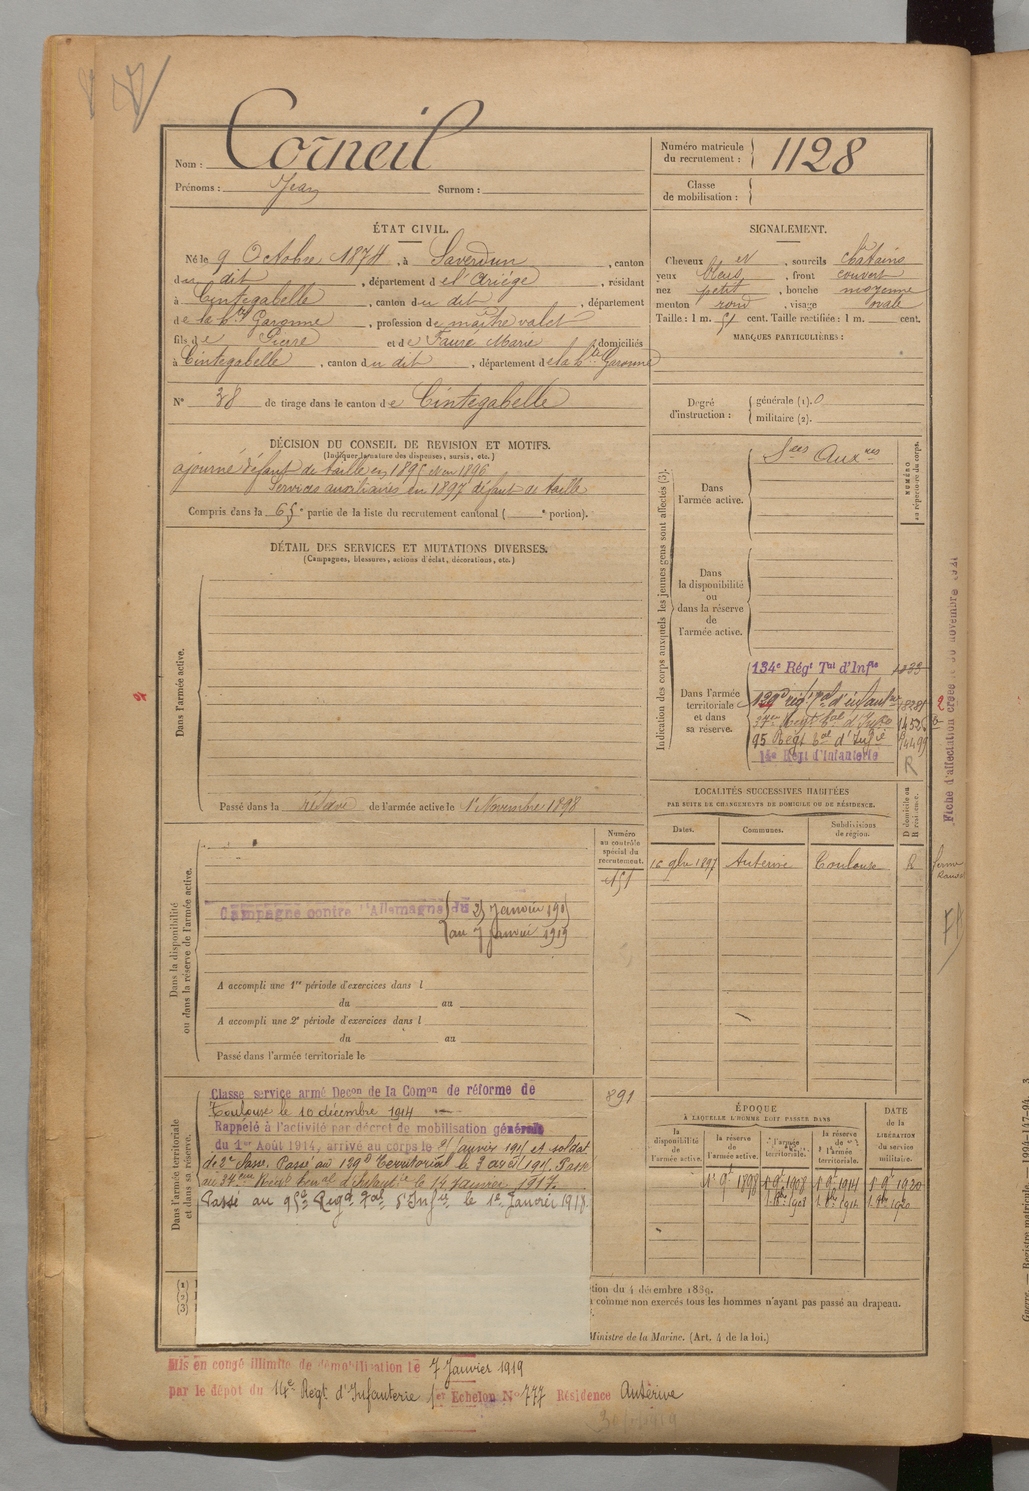 Nom : Corneil
Prénoms : Jean Surnom :
Numéro matricule du recrutement : 1128
Classe de mobilisation :
ÉTAT CIVIL.
Né le 9 Octobre 1874, à Saverdun, canton
du dit, département de l'Ariège, résidant
à Cintegabelle, canton du dit, département
de la hte Garonne, profession de maître valet
fils de Pierre et de Faure Marie domiciliés
à Cintegabelle, canton du dit, département de la hte Garonne
N° 38 de tirage dans le canton de Cintegabelle
SIGNALEMENT.
Cheveux et, sourcils châtains
yeux bleus, front couvert
nez petit, bouche moyenne
menton rond, visage ovale
Taille : 1 m. 51 cent. Taille rectifiée : 1 m. cent.
MARQUES PARTICULIÈRES :
Degré d'instruction : générale (1). 0
militaire (2).
DÉCISION DU CONSEIL DE REVISION ET MOTIFS.
(Indiquer la nature des dispenses, sursis, etc.)
ajourné défaut de taille en 1895 et en 1896
Services auxiliaires en 1897 défaut de taille
Compris dans la 6e partie de la liste du recrutement cantonal ( e portion).
DÉTAIL DES SERVICES ET MUTATIONS DIVERSES.
(Campagnes, blessures, actions d'éclat, décorations, etc.)
Dans l'armée active.
Passé dans la réserve de l'armée active le 1er Novembre 1898
Indication des corps auxquels les jeunes gens sont affectés (3).
NUMÉRO au répertoire du corps.
Dans l'armée active.
Sces Auxres
Dans la disponibilité ou dans la réserve de l'armée active.
Dans l'armée territoriale et dans sa réserve.
134e Régt Tal d'Infie
129e rég. tal d'infanterie
37e Regt tal d'Infie
95 Regt tal d'Infie
14e Regt d'Infanterie
R
Fiche d'affectation créée le novembre 1921
LOCALITÉS SUCCESSIVES HABITÉES
PAR SUITE DE CHANGEMENTS DE DOMICILE OU DE RÉSIDENCE.
Dates. Communes. Subdivisions de région. D domicile ou R résidence.
16 9bre 1897 Auterive Toulouse R
Dans la disponibilité ou dans la réserve de l'armée active.
Numéro au contrôle spécial du recrutement.
Campagne contre l'Allemagne du
au 7 Janvier 1919
A accompli une 1re période d'exercices dans l
du au
A accompli une 2e période d'exercices dans l
du au
Passé dans l'armée territoriale le
Dans l'armée territoriale et dans sa réserve.
891
Classé service armé Decon de la Comon de réforme de
Toulouse le 10 décembre 1914
Rappelé à l'activité par décret de mobilisation générale
du 1er Août 1914, arrivé au corps le janvier 1915 et soldat
de 2e classe. Passé au 129e Territorial le 3 avril 1915. Passé
au 37eme Régt tal d'Infie le 14 Janvier 1917.
Passé au 95e Regt tal d'Infie le 1er Janvier 1918
ÉPOQUE
À LAQUELLE L'HOMME DOIT PASSER DANS
DATE DE LA LIBÉRATION DU SERVICE MILITAIRE.
la disponibilité de l'armée active. la réserve de l'armée active. l'armée territoriale. la réserve de l'armée territoriale.
1er 9bre 1898 1er 9bre 1908 1er 9bre 1914 1er 9bre 1920
(1)
(2)
(3)
tion du 4 décembre 1889.
comme non exercés tous les hommes n'ayant pas passé au drapeau.
Ministre de la Marine. (Art. 4 de la loi.)
Mis en congé illimité de démobilisation le 7 Janvier 1919
par le dépot du 14e Regt d'Infanterie 1er Echelon N° 777 Résidence Auterive